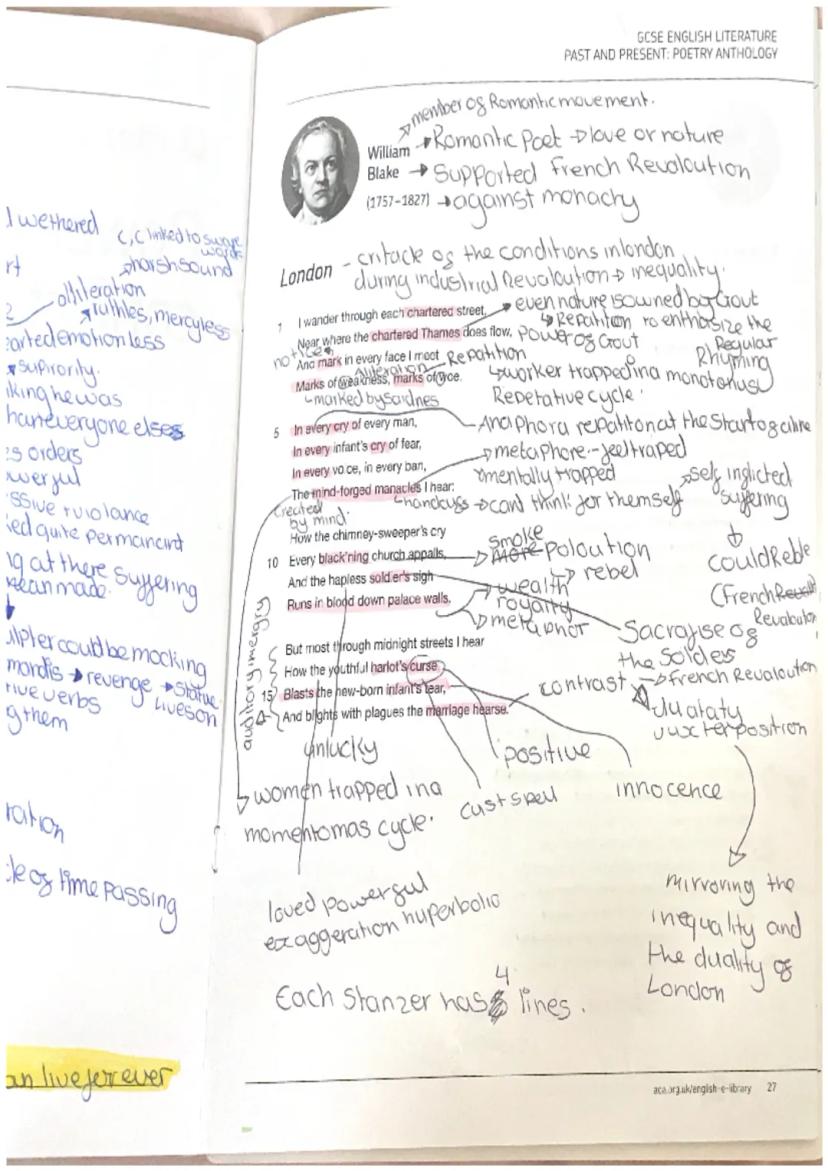 GCSE ENGLISH LITERATURE
PAST AND PRESENT: POETRY ANTHOLOGY
member of Romantic movement.
William
Blake
(1757–1827)
Romantic Poet → love or nature
Supported French Revaloution
against monachy
London
- critacle of the conditions in london
during industrial Revaloution → inequality.
1 I wander through each chartered street,
Near where the chartered Thames does flow,
And mark in every face I meet
Marks of weakness, marks of woe.
even nature is owned by Gout
Repatition to enthasize the
power of Gout
notices
Aliteration
Repatition
Regular
Rhyming
marked by saidnes
worker trapped in a monotonus
Repetative cycle.
5 In every cry of every man,
In every infant's cry of fear,
In every vo ce, in every ban,
The mind-forged manacles I hear:
Anaphora repatiton at the start of a line
metaphore - feel traped
mentally trapped
handcuffs → cant think for themself
self inflicted
suffering
could Reble
(French
Revaloution
created
by mind.
How the chimney-sweeper's cry
10 Every black'ning church appalls,
And the hapless soldier's sigh
Runs in blood down palace walls.
smoke
poloution
rebel
wealth
royalty
metaphor
Sacrafise of
the Soldies
But most through midnight streets I hear
How the youthful harlot's curse
15 Blasts the new-born infant's tear,
And blights with plagues the marriage hearse.
auditory imergry
contrast → French Revaloution
duataty
juxterposition
unlucky
positive
cust spell
innocence
women trapped in a
momentomas cycle.
loved powerful
exaggeration huperbolic
mirroring the
inequality and
the duality of
London
Each Stanzer has 4 lines.
aca.org.uk/english-e-library 27
wethered
C, C linked to sware
words
harsh sound
alliteration
ruthles, mercyless
emotionless
supirority.
king he was
than everyone elses
orders
owerful
violance
quite permanant
ng at there suffering
mean made.
ulpter could be mocking
revenge → statue
lives on
tive verbs
g them
ration
cle of time passing
an live forever